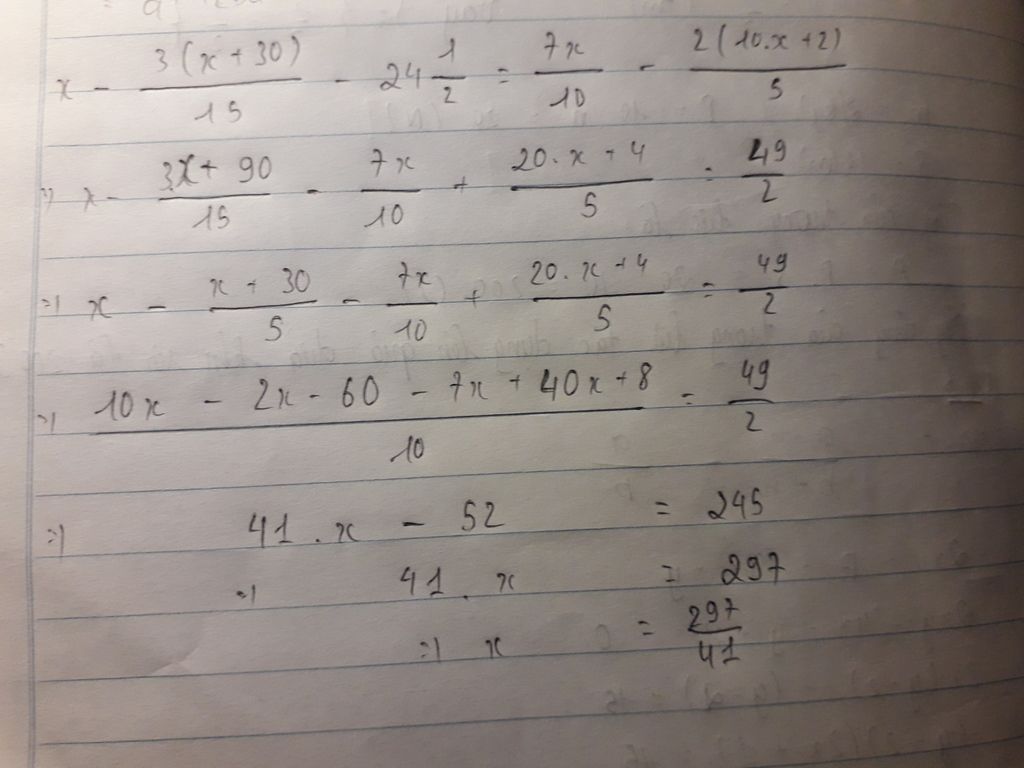 x - \frac{3(x+30)}{15} - 24\frac{1}{2} = \frac{7x}{10} - \frac{2(10.x+2)}{5}
=> x - \frac{3x+90}{15} - \frac{7x}{10} + \frac{20.x+4}{5} = \frac{49}{2}
=> x - \frac{x+30}{5} - \frac{7x}{10} + \frac{20.x+4}{5} = \frac{49}{2}
=> \frac{10x - 2x - 60 - 7x + 40x + 8}{10} = \frac{49}{2}
=> 41.x - 52 = 245
=> 41.x = 297
=> x = \frac{297}{41}